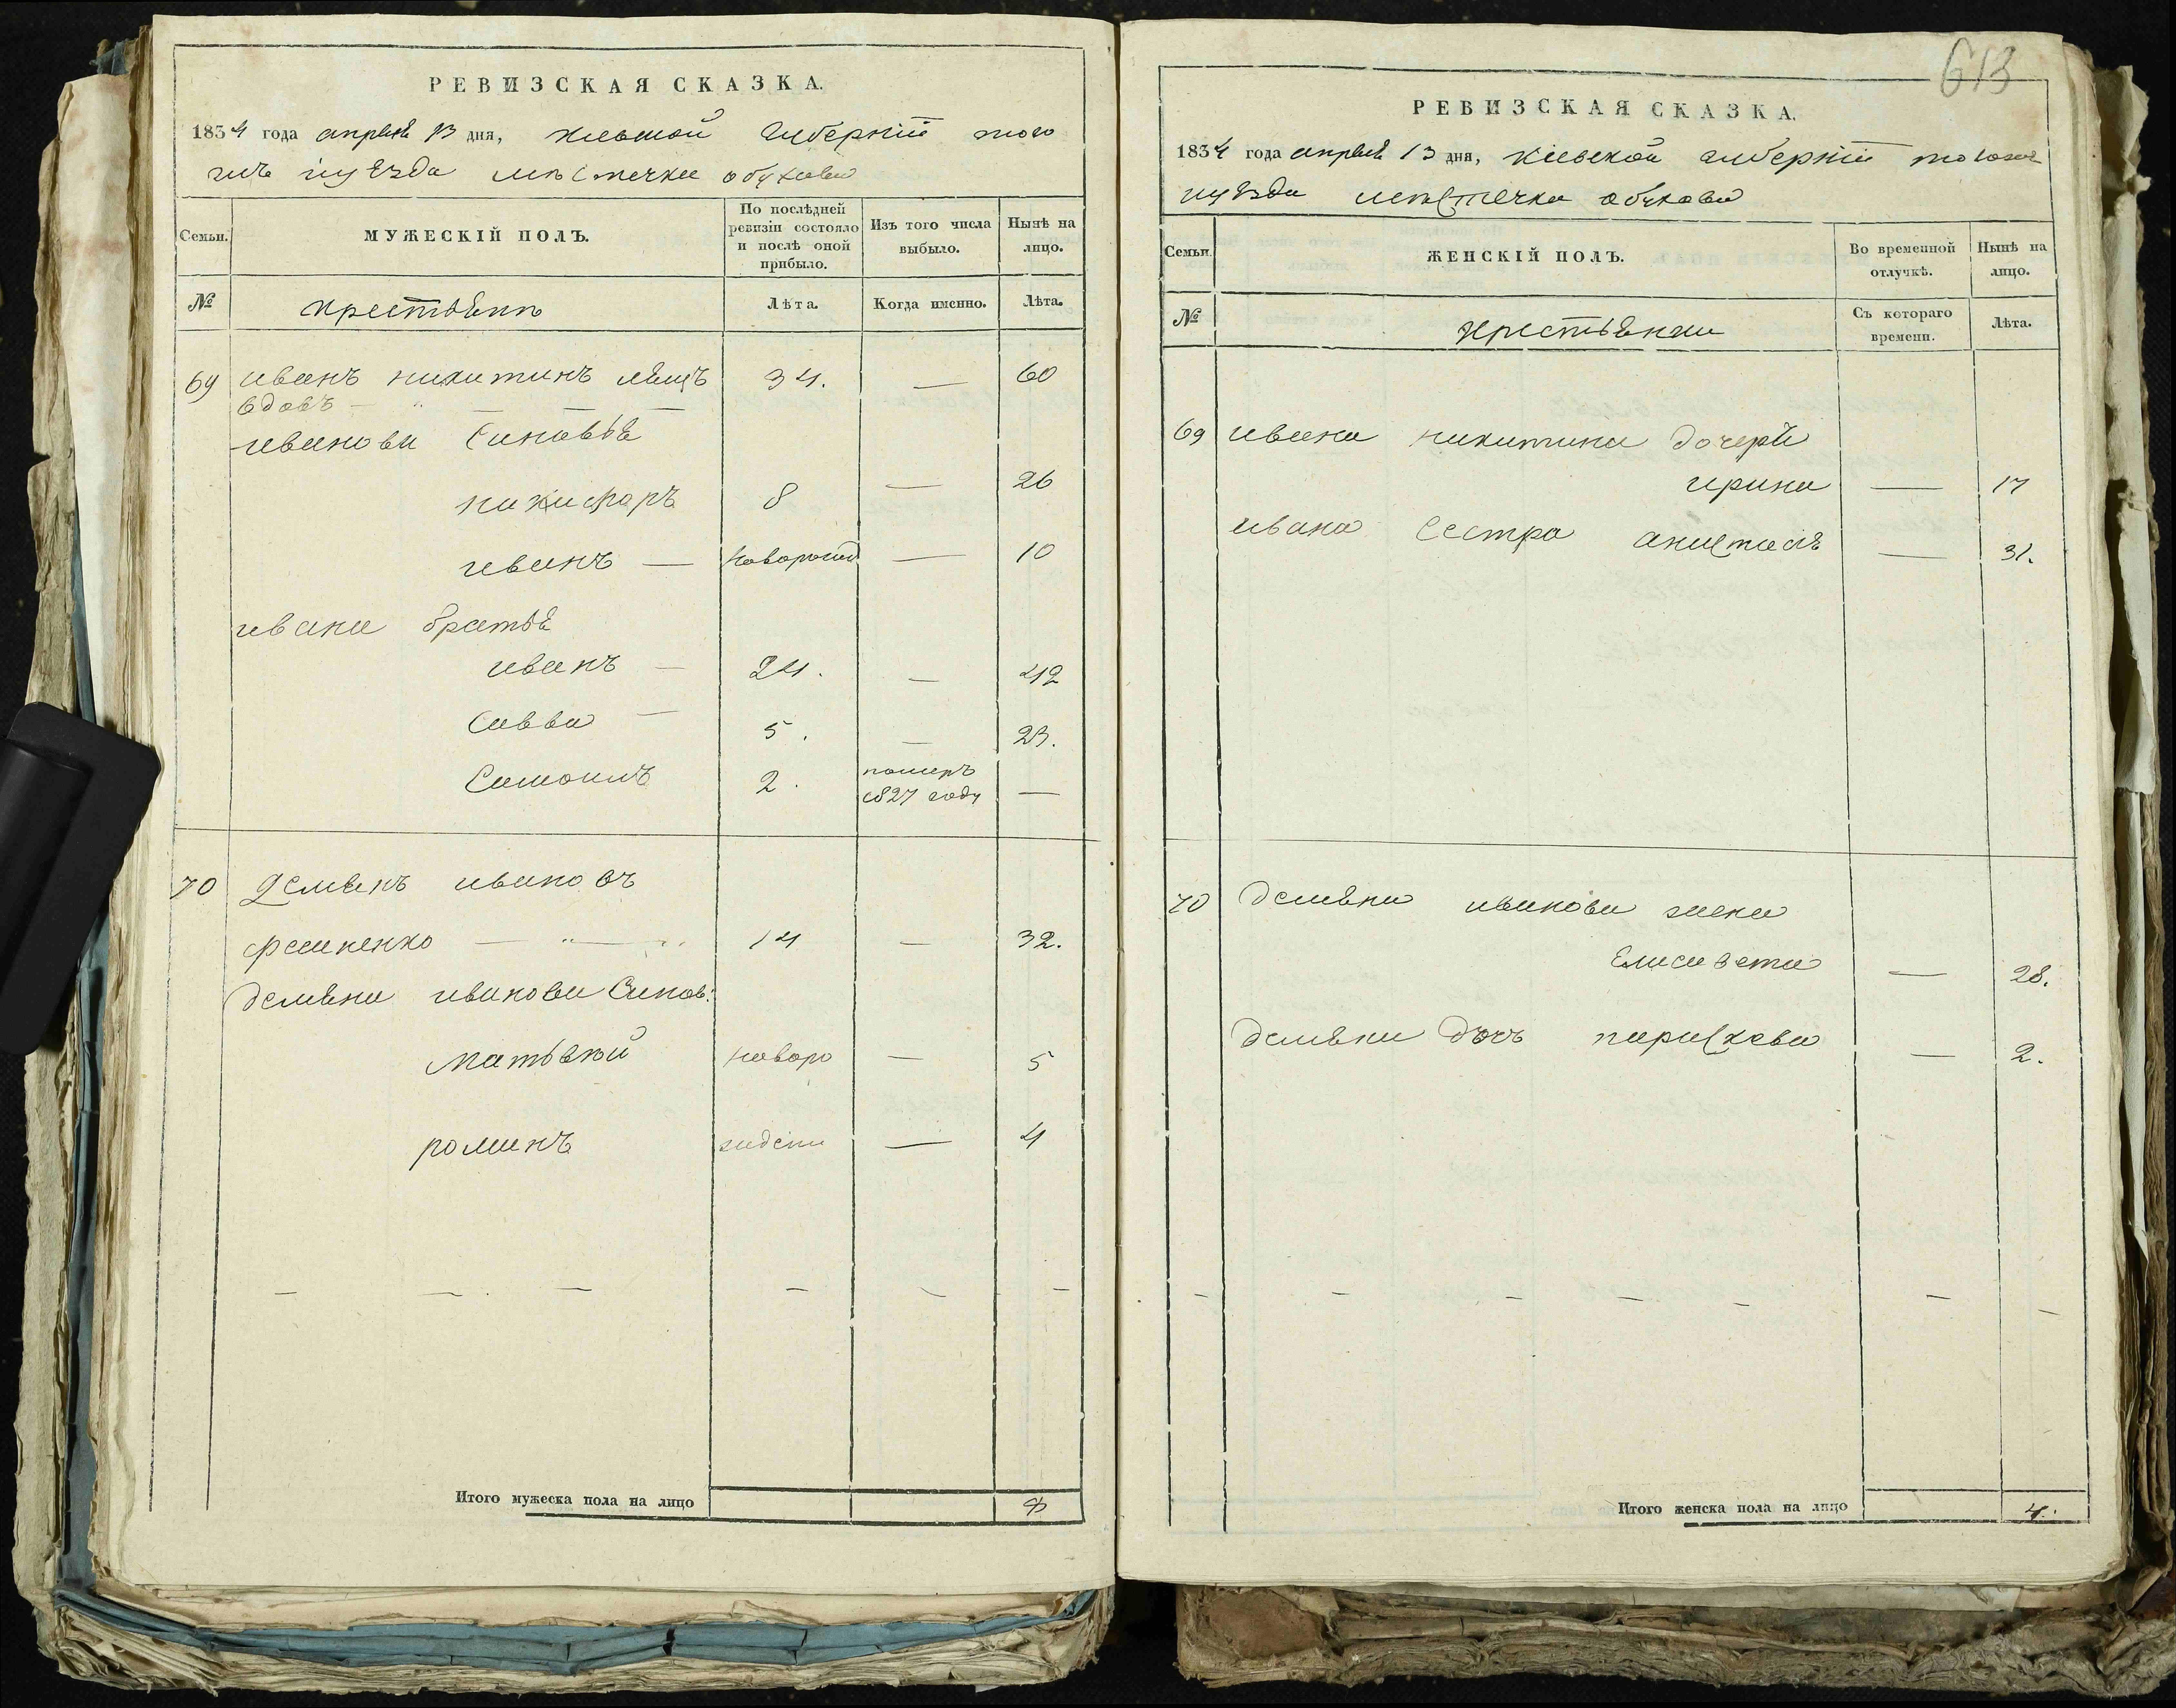 РЕВИЗСКАЯ СКАЗКА.
1834 года апрѣля 13 дня, Киевской губернїи того
жъ иуѣзда мѣстечка обухова
Семьи.
МУЖЕСКІЙ ПОЛЪ.
По послѣдней ревизіи состояло и послѣ оной прибыло.
Изъ того числа выбыло.
Нынѣ на лицо.
№
крестьѣнъ
Лѣта.
Когда именно.
Лѣта.
69 иванъ никитинъ лѣщъ 34. — 60
вдовъ
иванови Синовьѣ
никифоръ 8 — 26
иванъ — — 10
ивана братьѣ
иванъ — 24. — 42
Савва — 5. — 23.
Самоилъ 2. померъ 1827 году —
70 Демьѣнъ ивановъ
14 — 32.
демьѣна иванова Синов:
Матвѣй новоро — 5
романъ ждени — 4
Итого мужеска пола на лицо 8
613
РЕВИЗСКАЯ СКАЗКА.
1834 года апрѣля 13 дня, Кіевской губернїи тогожъ
иуѣзда мѣстечка обухова
Семьи.
ЖЕНСКІЙ ПОЛЪ.
Во временной отлучкѣ.
Нынѣ на лицо.
№
крестьѣнки
Съ котораго времени.
Лѣта.
69 ивана никитина дочери
ирина — 17
ивана Сестра анастасіѣ — 31.
70 демьѣна иванова жена
Елисавета — 28.
демьѣна дочь параскева — 2.
Итого женска пола на лицо 4.